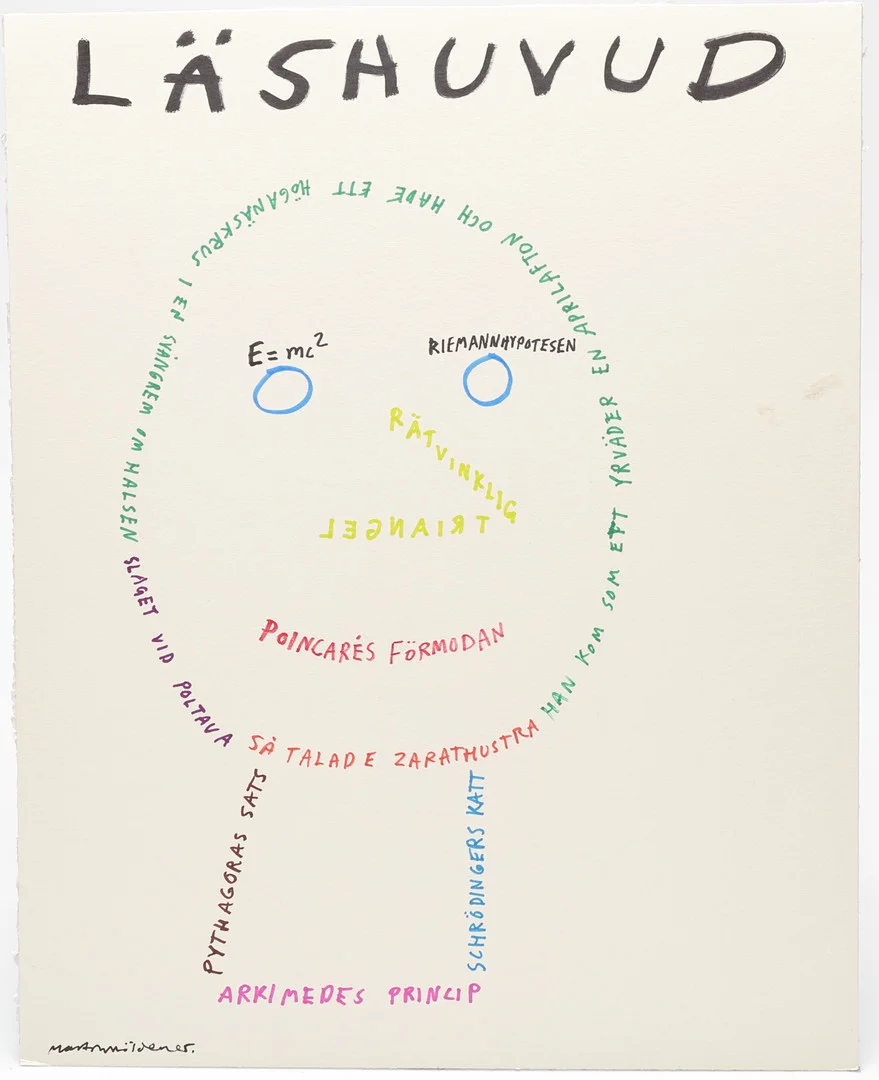 LÄSHUVUD
HAN KOM SOM ETT YRVÄDER EN APRILAFTON OCH HADE ETT HÖGANÄSKRUS I EN SVÅNGREM OM HALSEN
E=mc²
RIEMANNHYPOTESEN
RÄTVINKLIG
TRIANGEL
POINCARÉS FÖRMODAN
SLAGET VID POLTAVA
SÅ TALADE ZARATHUSTRA
PYTHAGORAS SATS
SCHRÖDINGERS KATT
ARKIMEDES PRINCIP